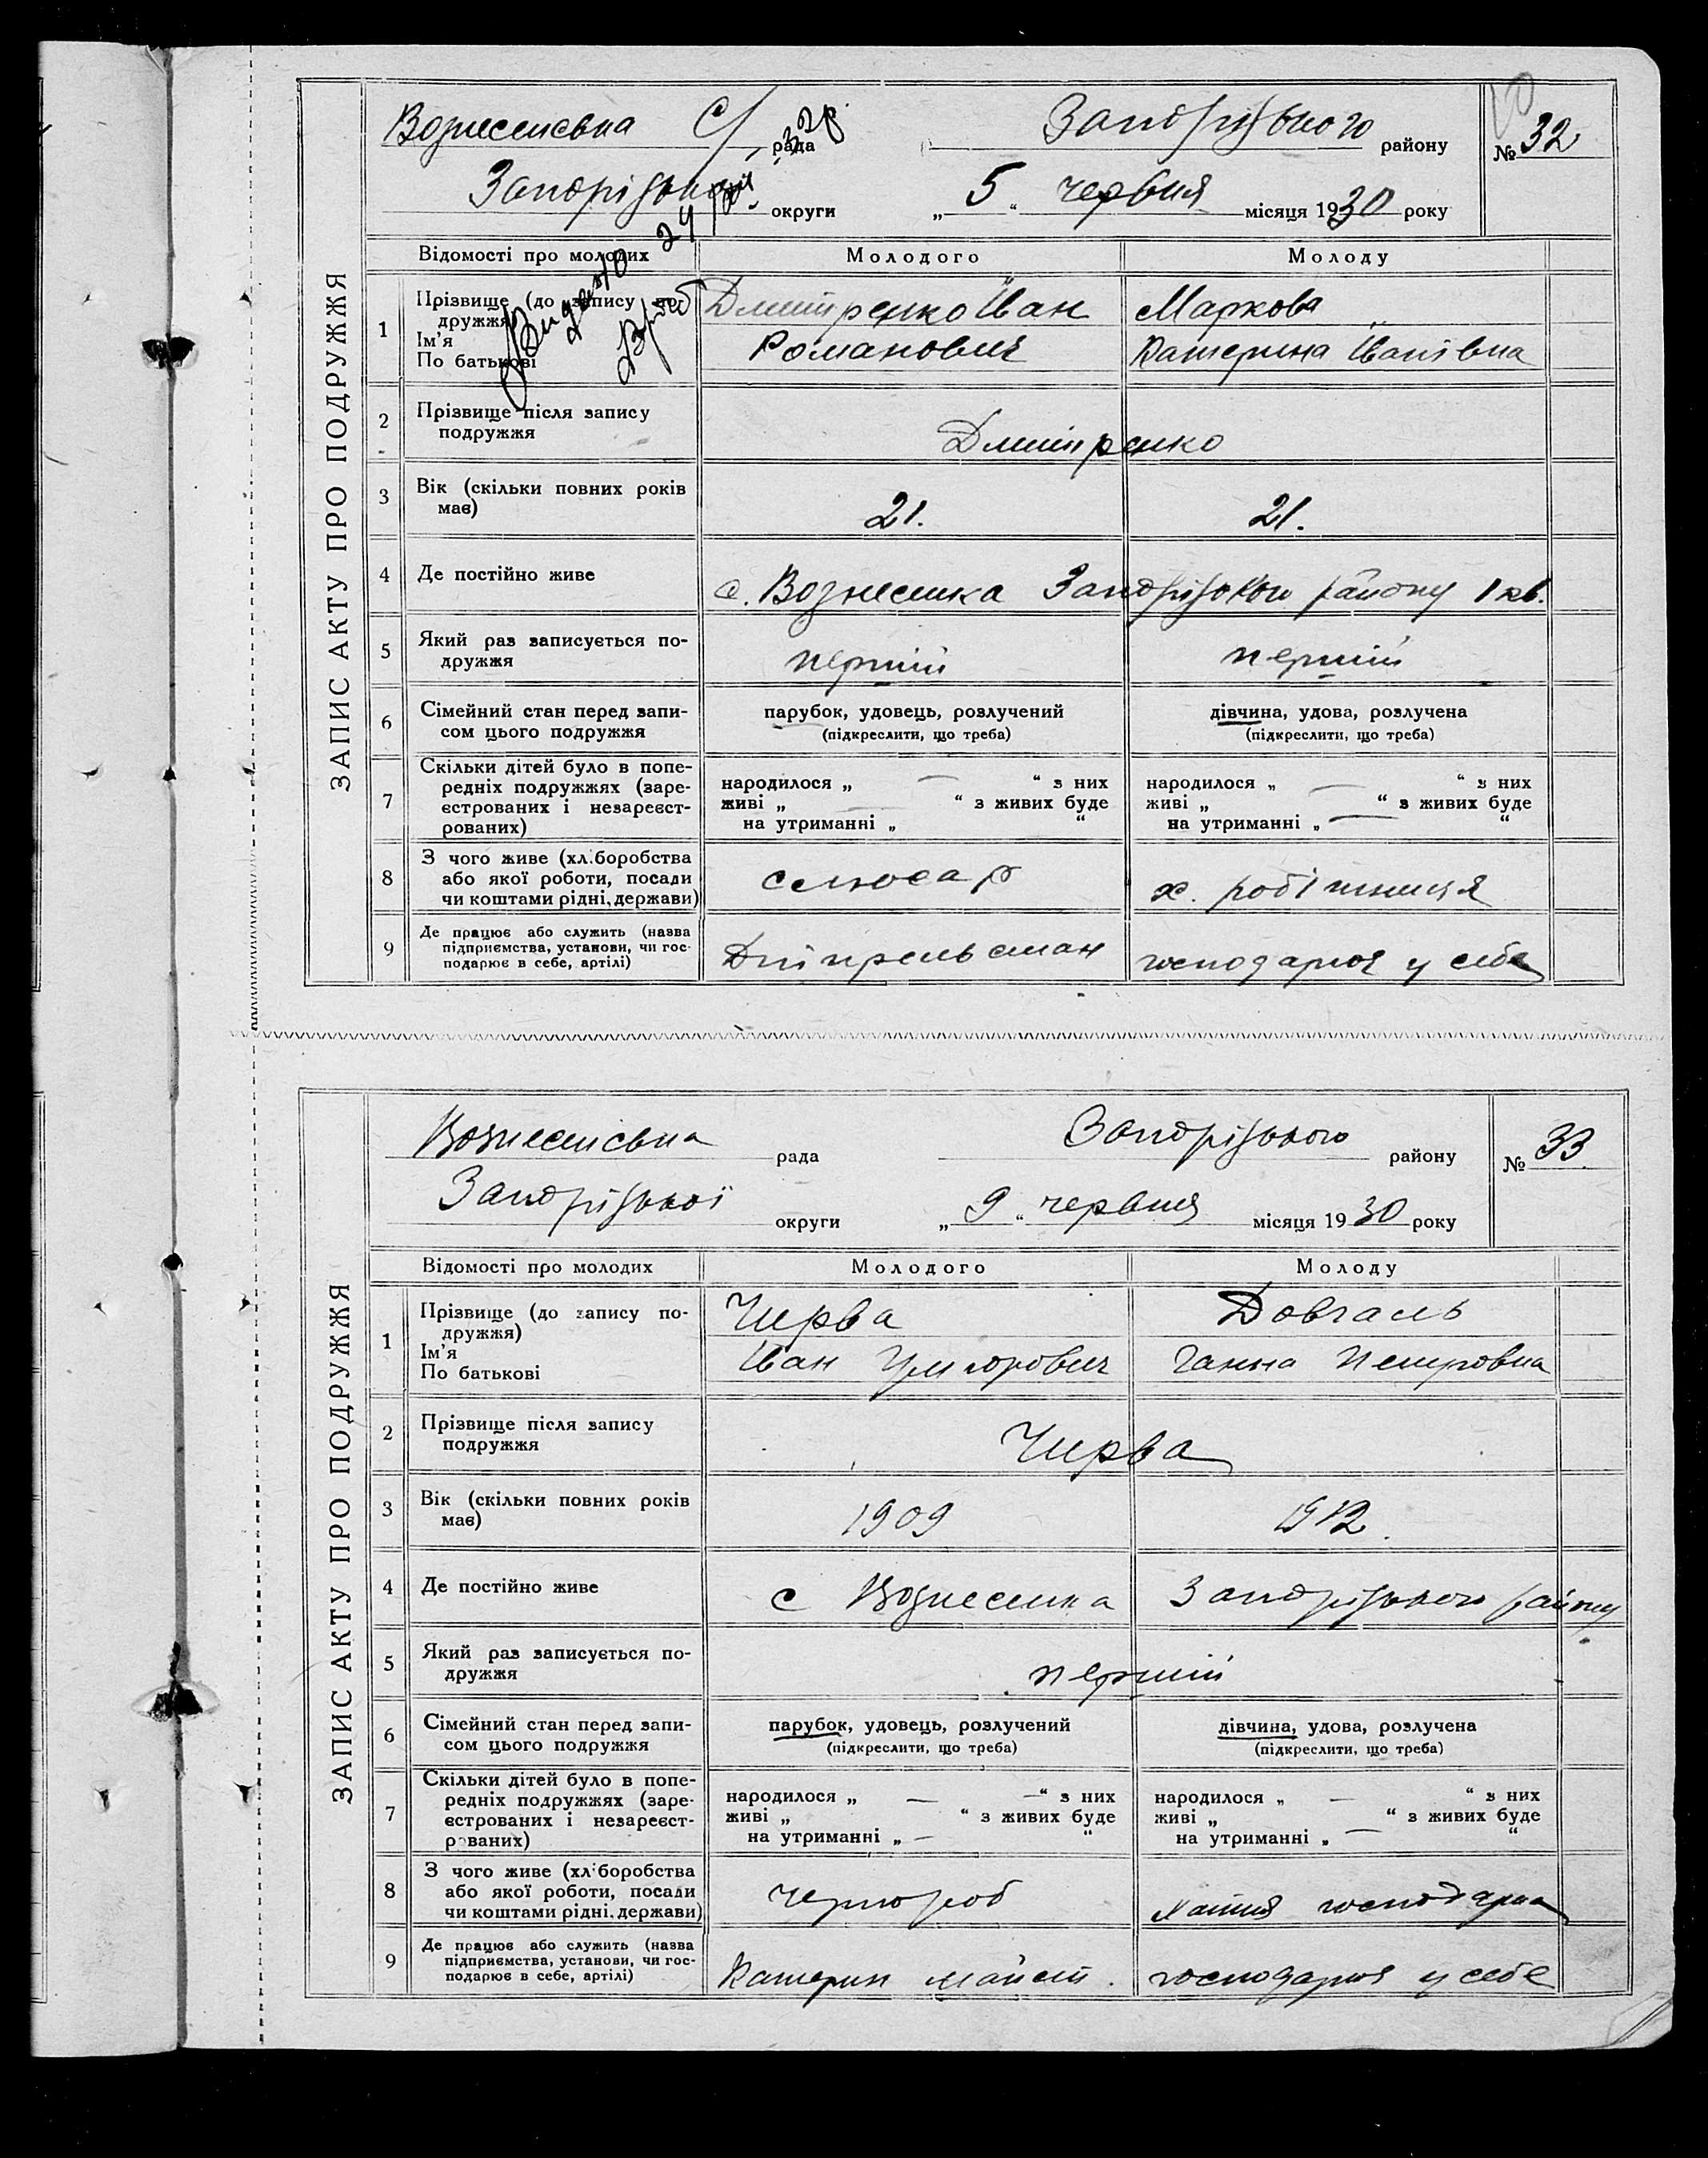 ЗАПИС АКТУ ПРО ПОДРУЖЖЯ
Вознесенсівна С/ рада Запорізького району № 32
Запорізької округи „ 5 “ червня місяця 1930 року
Видано 24
Відомості про молодих Молодого Молоду
1 Прізвище (до запису по-
дружжя)
Ім'я
По батькові
Дмитренко Іван
Романович
Маркова
Катерина Іванівна
2 Прізвище після запису
подружжя
Дмитренко
3 Вік (скільки повних років
має)
21. 21.
4 Де постійно живе с. Вознесенка Запорізького району 1 кв.
5 Який раз записується по-
дружжя
перший перший
6 Сімейний стан перед запи-
сом цього подружжя
парубок, удовець, розлучений
(підкреслити, що треба)
дівчина, удова, розлучена
(підкреслити, що треба)
7 Скільки дітей було в попе-
редніх подружжях (заре-
єстрованих і незареєст-
рованих)
народилося „ — “ з них
живі „ — “ з живих буде
на утриманні „ “
народилося „ — “ з них
живі „ “ з живих буде
на утриманні „ — “
8 З чого живе (хл.боробства
або якої роботи, посади
чи коштами рідні, держави)
слюсар
х. робітниця
9 Де працює або служить (назва
підприємства, установи, чи гос-
подарює в себе, артілі)
Дніпрельстан
господарює у себе
ЗАПИС АКТУ ПРО ПОДРУЖЖЯ
Вознесенсівна рада Запорізького району № 33
Запорізької округи „ 9 “ червня місяця 1930 року
Відомості про молодих Молодого Молоду
1 Прізвище (до запису по-
дружжя)
Ім'я
По батькові
Чирва
Іван
Довгаль
Ганна Петровна
2 Прізвище після запису
подружжя
Чирва
3 Вік (скільки повних років
має)
1909 1912.
4 Де постійно живе с Вознесенка Запорізького району
5 Який раз записується по-
дружжя
перший
6 Сімейний стан перед запи-
сом цього подружжя
парубок, удовець, розлучений
(підкреслити, що треба)
дівчина, удова, розлучена
(підкреслити, що треба)
7 Скільки дітей було в попе-
редніх подружжях (заре-
єстрованих і незареєст-
рованих)
народилося „ — “ з них
живі „ “ з живих буде
на утриманні „ — “
народилося „ — “ з них
живі „ “ з живих буде
на утриманні „ — “
8 З чого живе (хл.боробства
або якої роботи, посади
чи коштами рідні, держави)
чернороб
хатня господарка
9 Де працює або служить (назва
підприємства, установи, чи гос-
подарює в себе, артілі)
Катерин майст.
господарює у себе